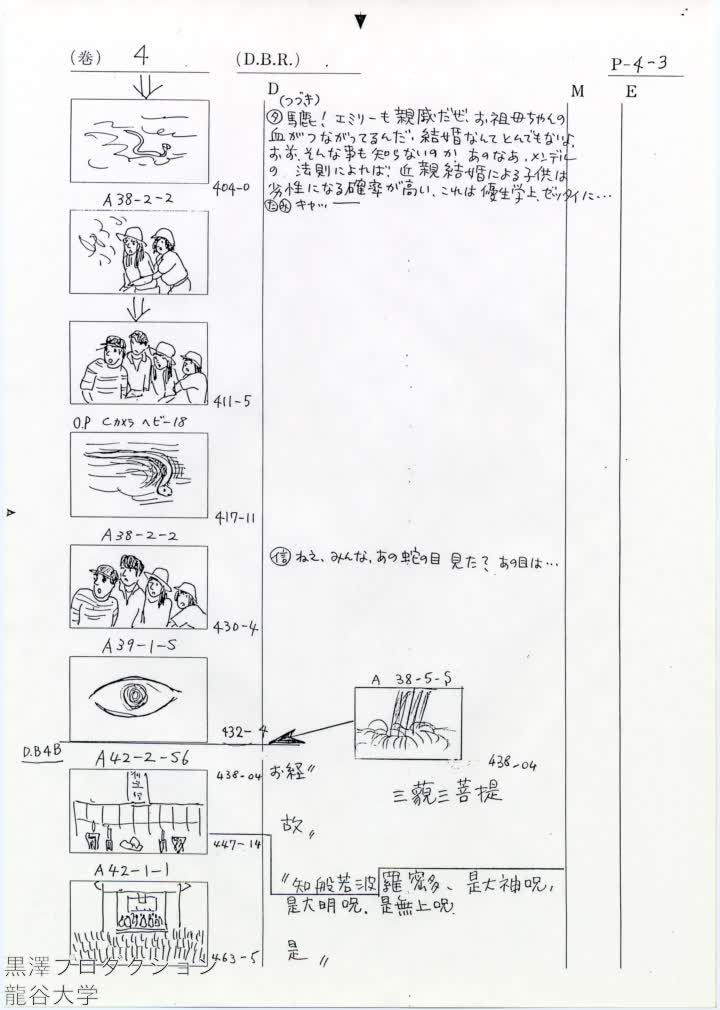 (巻) 4 (D.B.R.) P-4-3
D M E
(つづき)
タ 馬鹿! エミリーも親戚だぜ、お祖母ちゃんの
血がつながってるんだ、結婚なんてとんでもないよ
お前、そんな事も知らないのか あのなあ、メンデル
の 法則によれば、近親結婚による子供は
劣性になる確率が高い、これは優生学上、ゼッタイに…
たみ キャッ——
404-0
A38-2-2
411-5
O.P Cカメラ ヘビー18
417-11
A38-2-2
信 ねえ、みんな、あの蛇の目 見た? あの目は…
430-4
A39-1-5
432-4
A 38-5-5
438-04
三藐三菩提
D.B4B
A42-2-56
438-04
お経〃
故〃
447-14
A42-1-1
〃知般若波羅蜜多、是大神呪,
是大明呪、是無上呪
463-5
是〃
黒澤プロダクション
龍谷大学